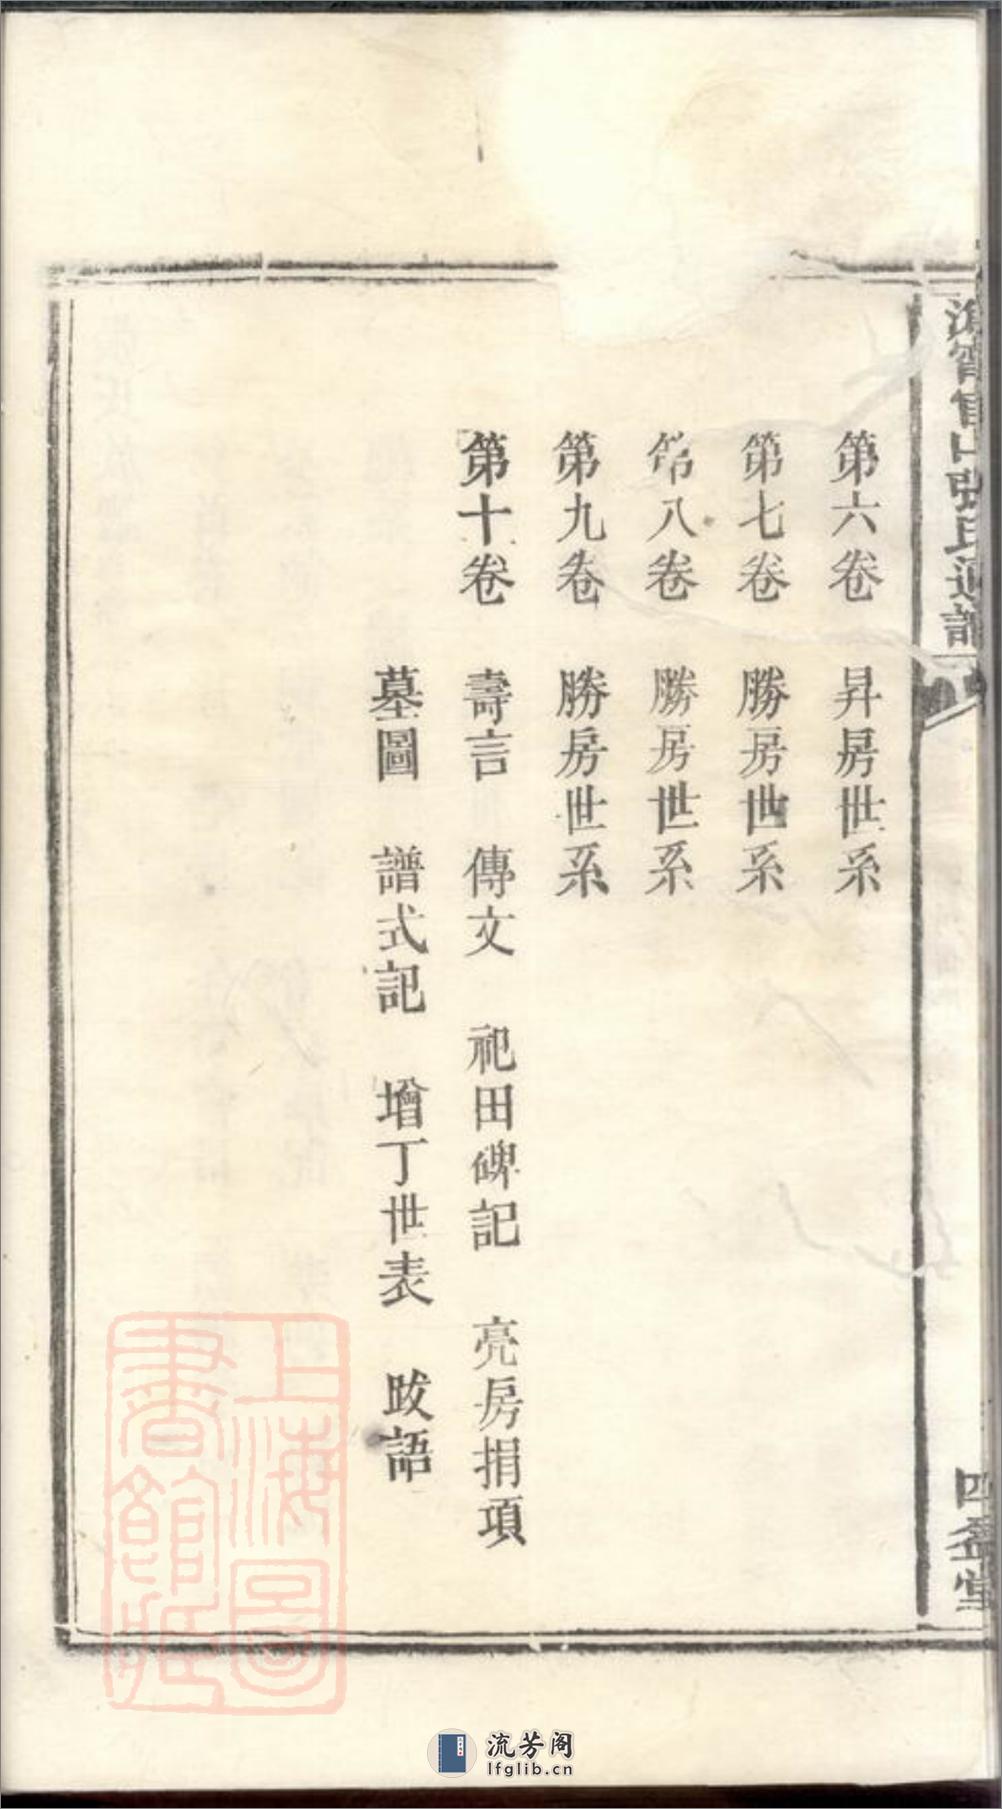 官山張氏通譜
四益堂
第六卷　昇房世系
第七卷　勝房世系
第八卷　勝房世系
第九卷　勝房世系
第十卷　壽言　傳文　祀田碑記　亮房捐項
墓圖　譜式記　增丁世表　跋語
上海圖書館藏
流芳阁
lfglib.cn